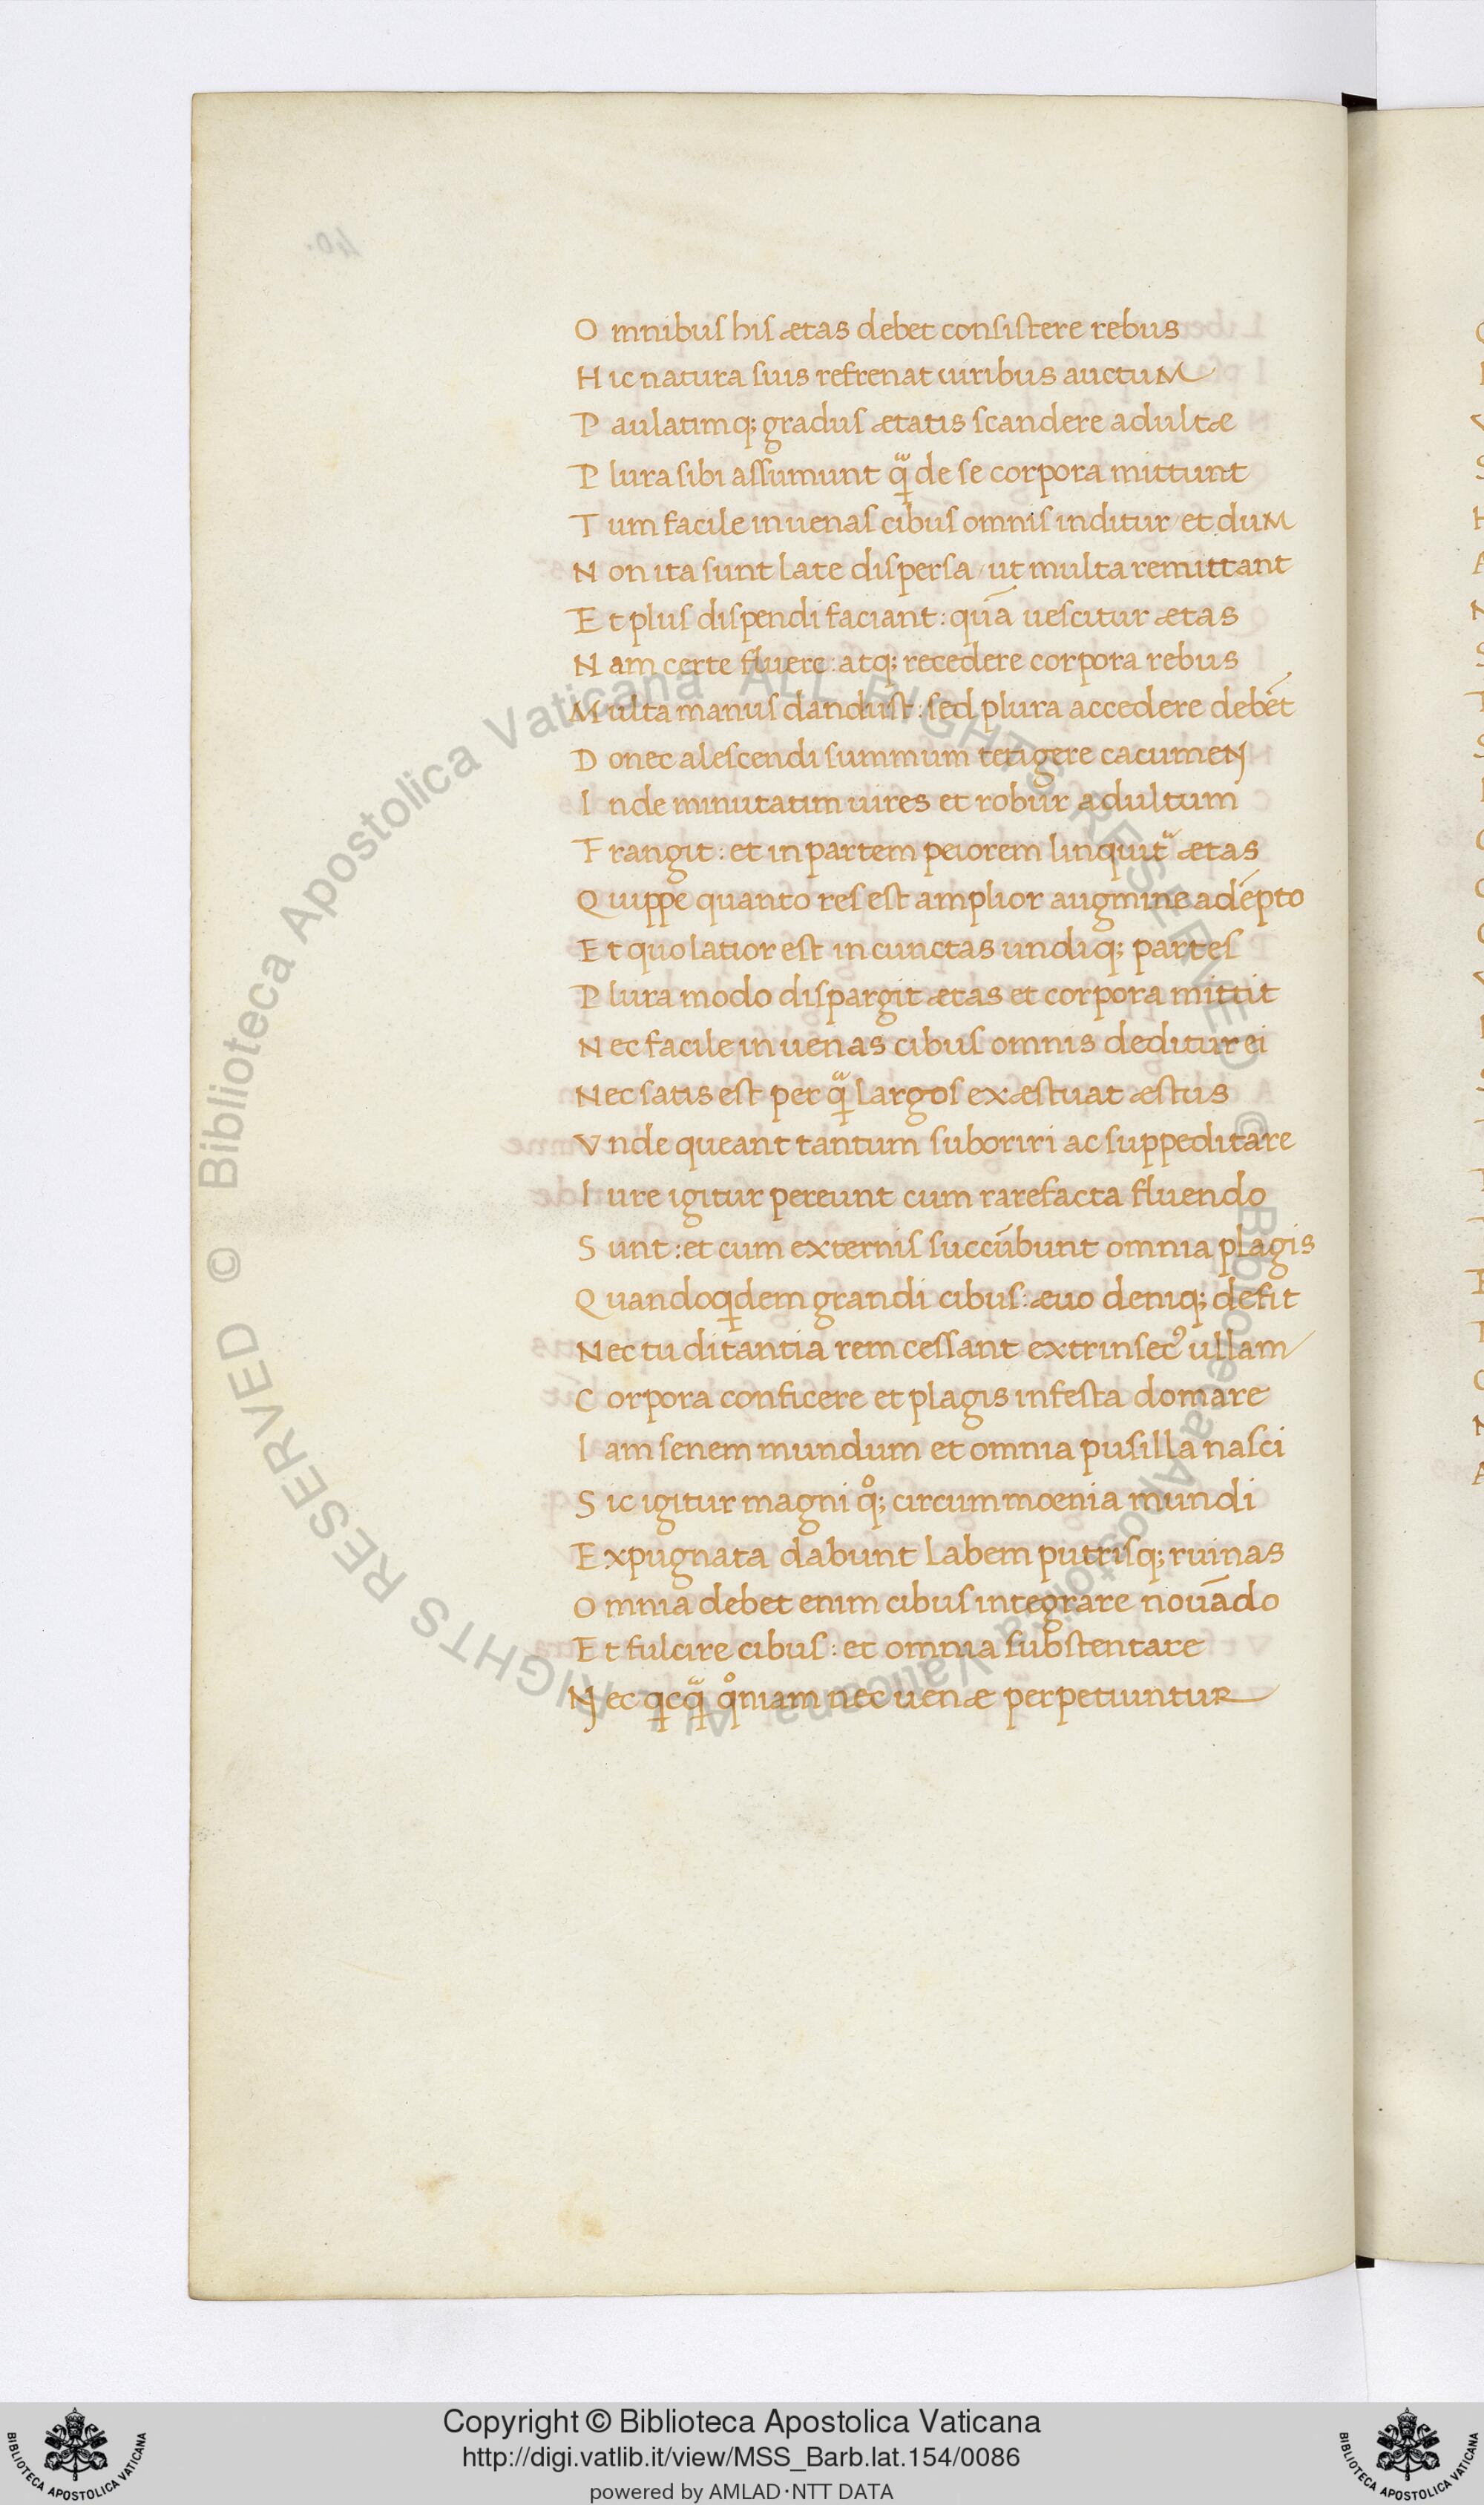 40.
O mnibuſ hiſ ætas debet conſiſtere rebus
H ic natura ſuis refrenat uiribus auctuM
P aulatimq; graduſ ætatis ſcandere adultæ
P lura ſibi aſſumunt qᷓ de ſe corpora mittunt
T um facile in uenaſ cibuſ omniſ inditur / et duM
N on ita ſunt late diſperſa / ut multa remittant
E t pluſ diſpendi faciant : quā ueſcitur ætas
N am certe fluere : atq; recedere corpora rebus
M ulta manuſ danduſt : ſed plura accedere debēt
D onec aleſcendi ſummum tetigere cacumeN
I nde minutatim uires et robur adultum
F rangit : et in partem peiorem linquitᷓ ætas
Q uippe quanto reſ eſt amplior augmine adépto
E t quo latior eſt in cunctas undiq; parteſ
P lura modo diſpargit ætas et corpora mittit
N ec facile in uenas cibuſ omnis deditur ei
N ec ſatis eſt per qᷓ largoſ exæſtuat æſtus
V nde queant tantum ſuboriri ac ſuppeditare
I ure igitur pereunt cum rarefacta fluendo
S unt : et cum externiſ ſuccūbunt omnia plagis
Q uandoqdem grandi cibuſ : æuo deniq; defit
N ec tu ditantia rem ceſſant extrinſecꝰ ullam
C orpora conficere et plagis infeſta domare
I am ſenem mundum et omnia puſilla naſci
S ic igitur magni qͦ; circum moenia mundi
E xpugnata dabunt labem putriſq; ruinas
O mnia debet enim cibuſ integrare nouādo
E t fulcire cibuſ : et omnia ſubſtentare
N ec qcqᷓ qͦniam nec uenæ perpetiuntuR
© Biblioteca Apostolica Vaticana ALL RIGHTS RESERVED © Biblioteca Apostolica Vaticana ALL RIGHTS RESERVED
Copyright © Biblioteca Apostolica Vaticana
http://digi.vatlib.it/view/MSS_Barb.lat.154/0086
powered by AMLAD·NTT DATA
BIBLIOTECA APOSTOLICA VATICANA
BIBLIOTECA APOSTOLICA VATICANA